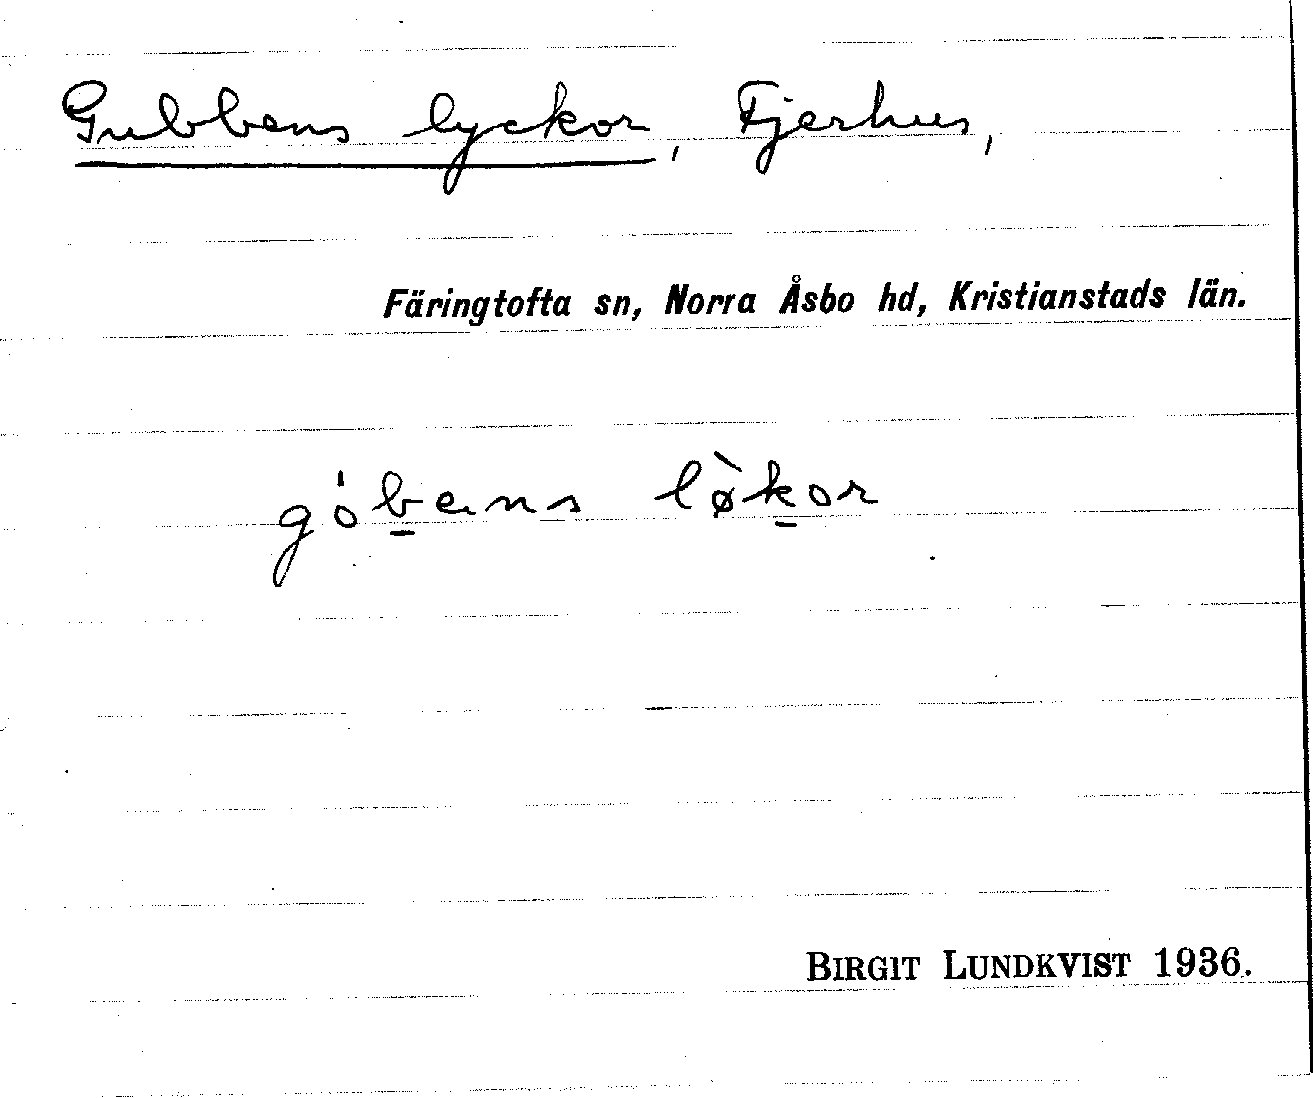 Gubbens lyckor, Fjerhus,
Färingtofta sn, Norra Åsbo hd, Kristianstads län.
gób̲ens lø̀k̲or
BIRGIT LUNDKVIST 1936.